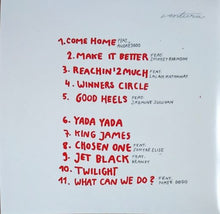 ventura
1. COME HOME FEAT. ANDRE 3000
2. MAKE IT BETTER FEAT. SMOKEY ROBINSON
3. REACHIN' 2 MUCH FEAT. LALAH HATHAWAY
4. WINNERS CIRCLE
5. GOOD HEELS FEAT. JAZMINE SULLIVAN
6. YADA YADA
7. KING JAMES
8. CHOSEN ONE FEAT. SONYAE ELISE
9. JET BLACK FEAT. BRANDY
10. TWILIGHT
11. WHAT CAN WE DO? FEAT. NATE DOGG